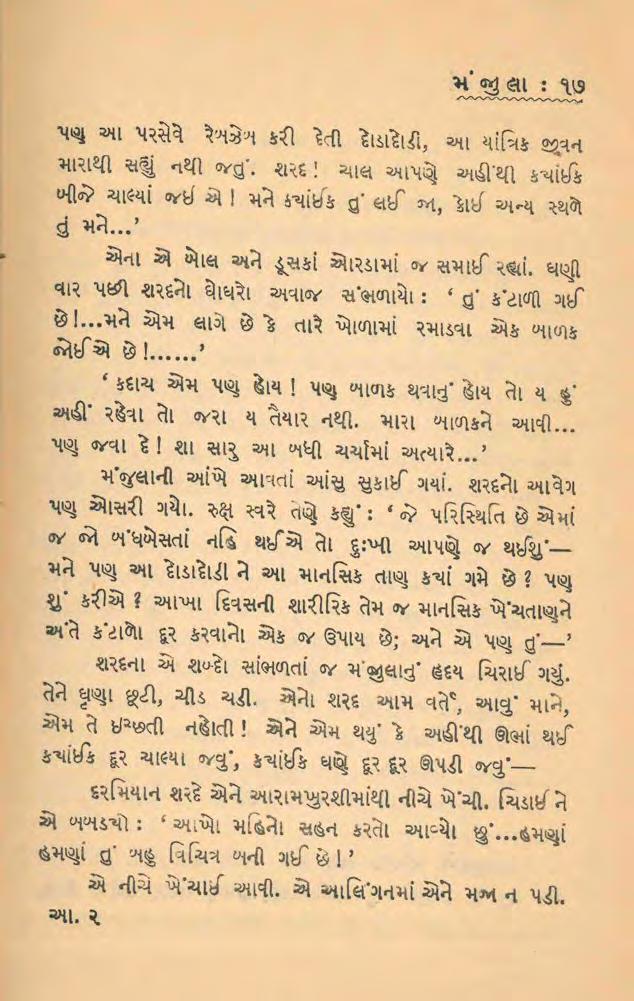 મંજુલા : ૧૭
પણ આ પરસેવે રેબઝેબ કરી દેતી દોડાદોડી, આ યાંત્રિક જીવન
મારાથી સહ્યું નથી જતું. શરદ! ચાલ આપણે અહીંથી ક્યાંઈક
બીજે ચાલ્યાં જઈ એ! મને ક્યાંઈક તું લઈ જા, કોઈ અન્ય સ્થળે
તું મને...’
એના એ બોલ અને ડૂસકાં ઓરડામાં જ સમાઈ રહ્યાં. ઘણી
વાર પછી શરદનો ઘોઘરો અવાજ સંભળાયો : ‘ તું કંટાળી ગઈ
છે!...મને એમ લાગે છે કે તારે ખોળામાં રમાડવા એક બાળક
જોઈએ છે!......’
‘ કદાચ એમ પણ હોય! પણ બાળક થવાનું હોય તો ય હું
અહીં રહેવા તો જરા ય તૈયાર નથી. મારા બાળકને આવી...
પણ જવા દે! શા સારુ આ બધી ચર્ચામાં અત્યારે...’
મંજુલાની આંખે આવતાં આંસુ સુકાઈ ગયાં. શરદનો આવેગ
પણ ઓસરી ગયો. રુક્ષ સ્વરે તેણે કહ્યું : ‘ જે પરિસ્થિતિ છે એમાં
જ જો બંધબેસતાં નહિ થઈએ તો દુઃખી આપણે જ થઈશું—
મને પણ આ દોડાદોડી ને આ માનસિક તાણ ક્યાં ગમે છે? પણ
શું કરીએ? આખા દિવસની શારીરિક તેમ જ માનસિક ખેંચતાણને
અંતે કંટાળો દૂર કરવાનો એક જ ઉપાય છે; અને એ પણ તું—’
શરદના એ શબ્દો સાંભળતાં જ મંજુલાનું હૃદય ચિરાઈ ગયું.
તેને ઘૃણા છૂટી, ચીડ ચડી. એનો શરદ આમ વર્તે, આવું માને,
એમ તે ઇચ્છતી નહોતી! એને એમ થયું કે અહીંથી ઊભાં થઈ
ક્યાંઈક દૂર ચાલ્યા જવું, ક્યાંઈક ઘણે દૂર દૂર ઊપડી જવું—
દરમિયાન શરદે એને આરામખુરશીમાંથી નીચે ખેંચી. ચિડાઈ ને
એ બબડ્યો : ‘ આખો મહિનો સહન કરતો આવ્યો છું...હમણાં
હમણાં તું બહુ વિચિત્ર બની ગઈ છે!’
એ નીચે ખેંચાઈ આવી. એ આલિંગનમાં એને મજા ન પડી.
આ. ૨